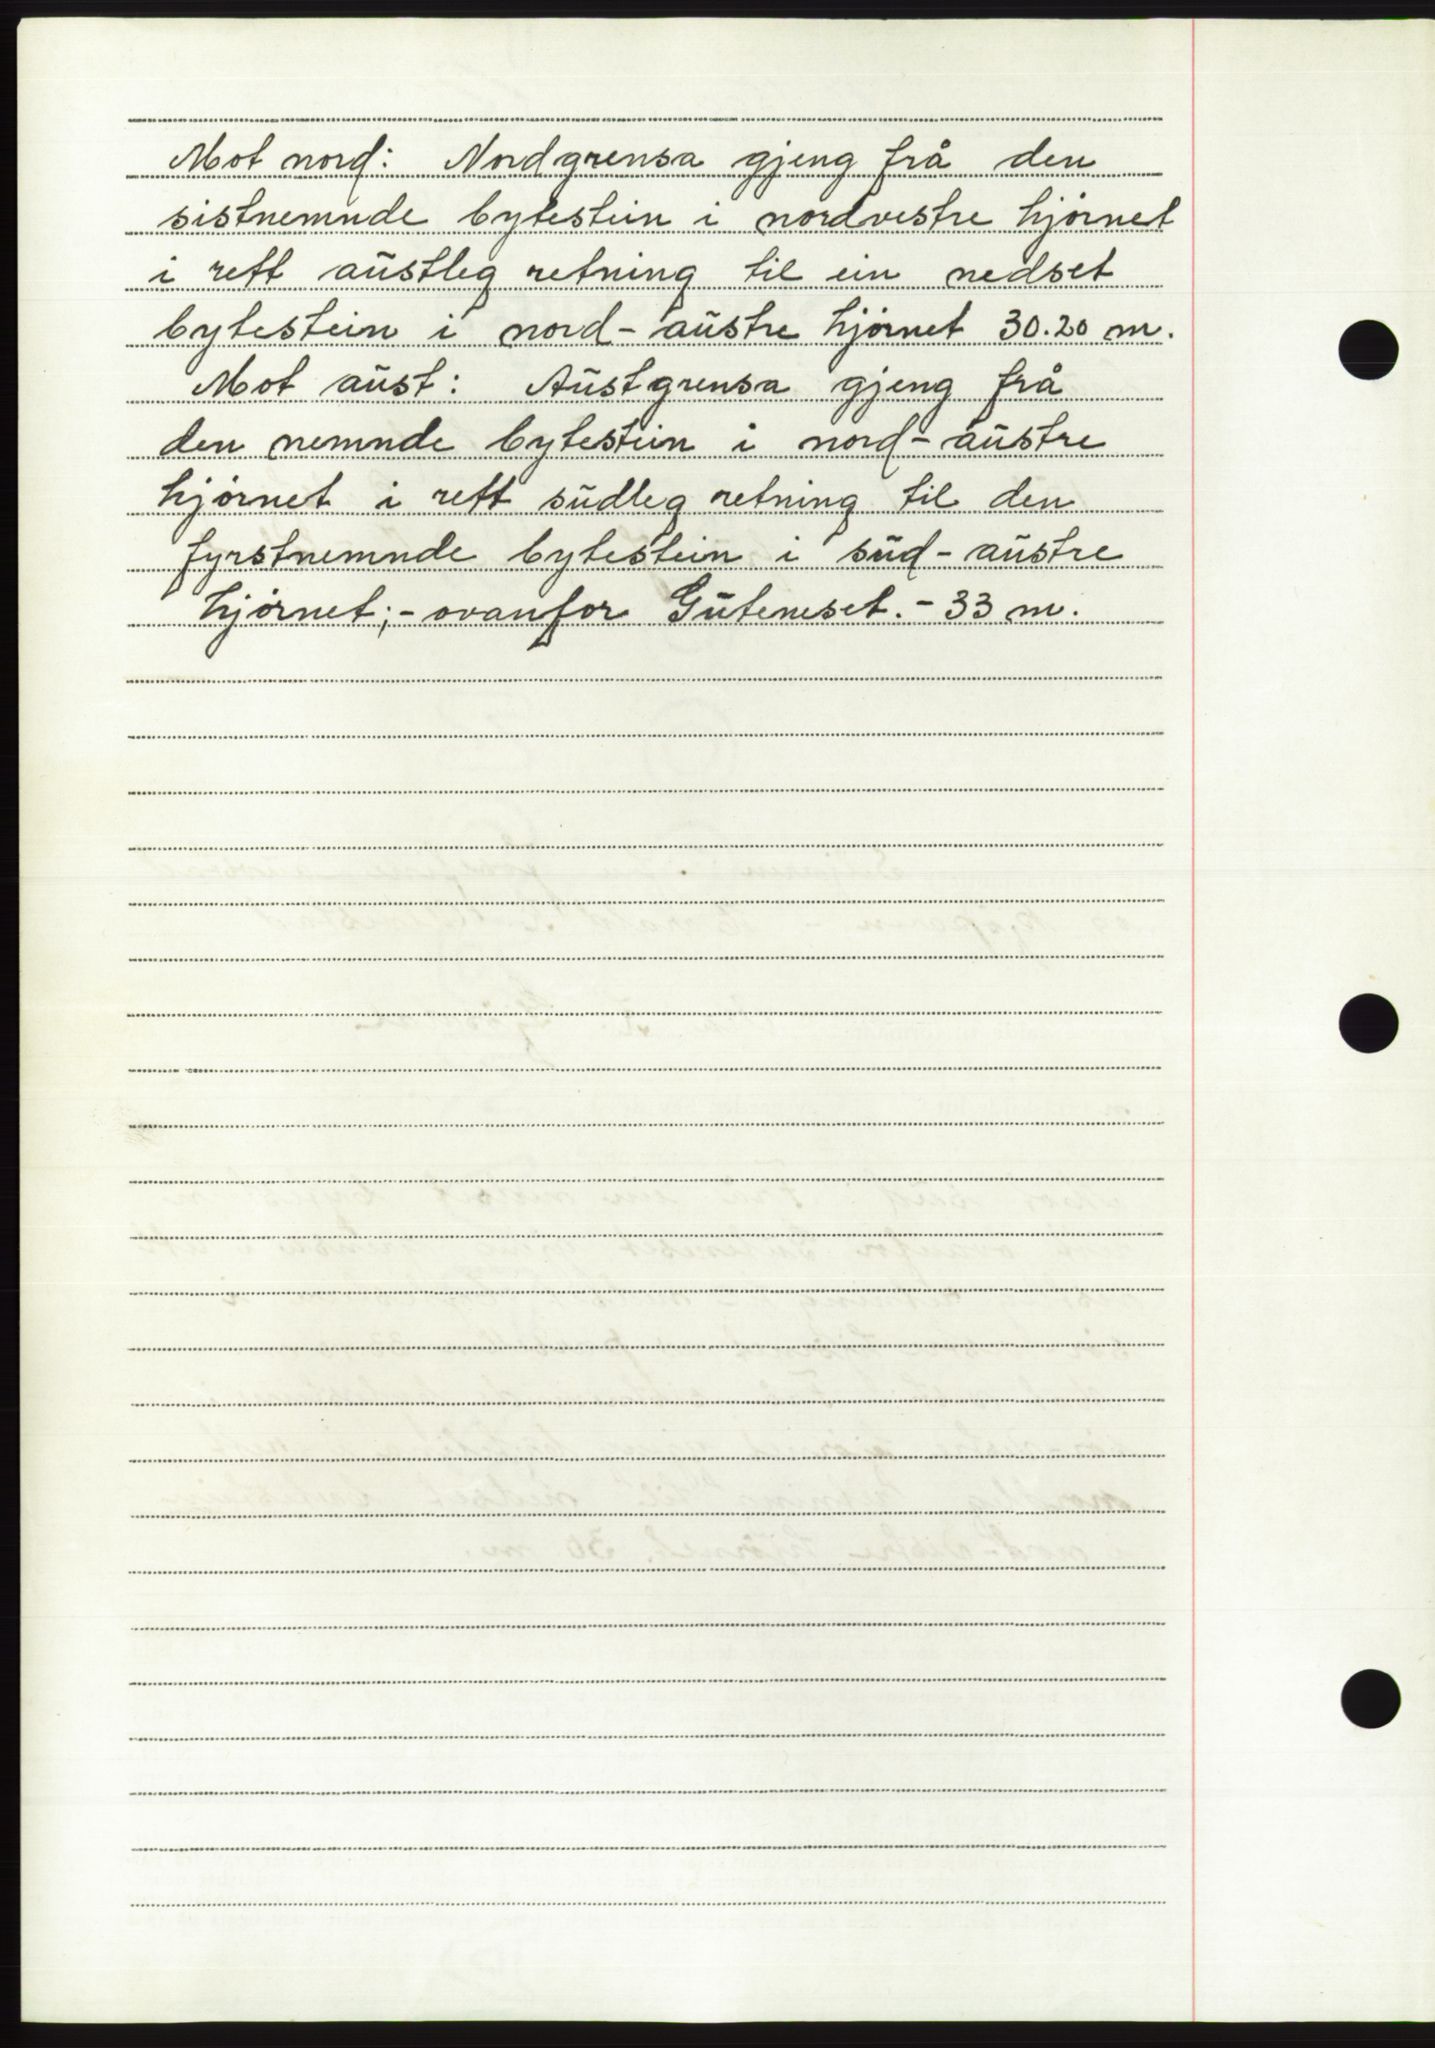 Mot nord: Nordgrensa gjeng frå den
sistnemnde bytestein i nordvestre hjørnet
i rett austleg retning til ein nedset
bytestein i nord-austre hjørnet 30.20 m.
Mot aust: Austgrensa gjeng frå
den nemnde bytestein i nord-austre
hjørnet i rett sudleg retning til den
fyrstnemnde bytestein i sud-austre
hjørnet;- ovanfor Guteneset. - 33 m.